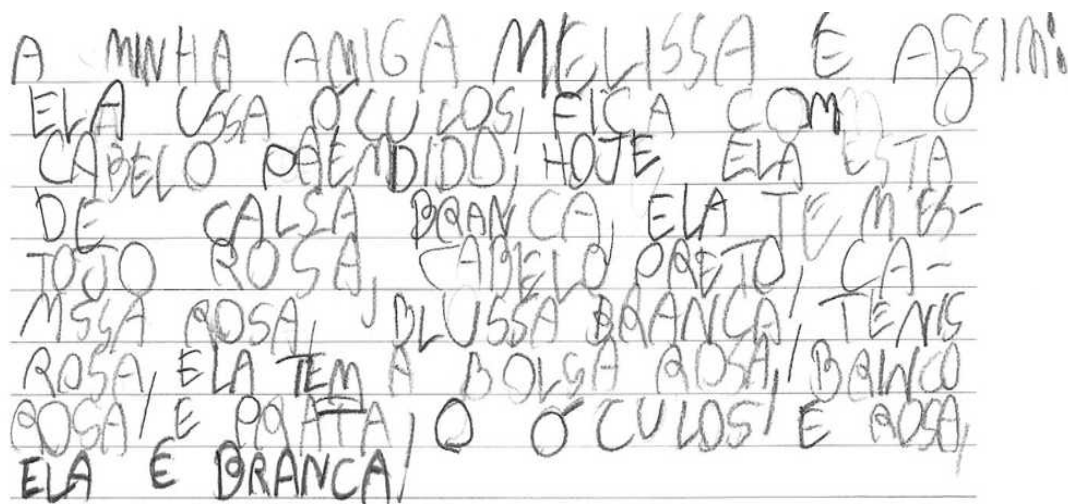 A MINHA AMIGA MELISSA E ASSIM:
ELA USSA ÓCULOS, FICA COM O
CABELO PRENDIDO, HOJE ELA ESTA
DE CALSA BRANCA, ELA TEM ES-
TOJO ROSA, CABELO PRETO, CA-
MSSA ROSA, BLUSSA BRANCA, TENIS
ROSA, ELA TEM A BOLSA ROSA, BRINCO
ROSA, E PRATA, O ÓCULOS, E ROSA,
ELA E BRANCA,